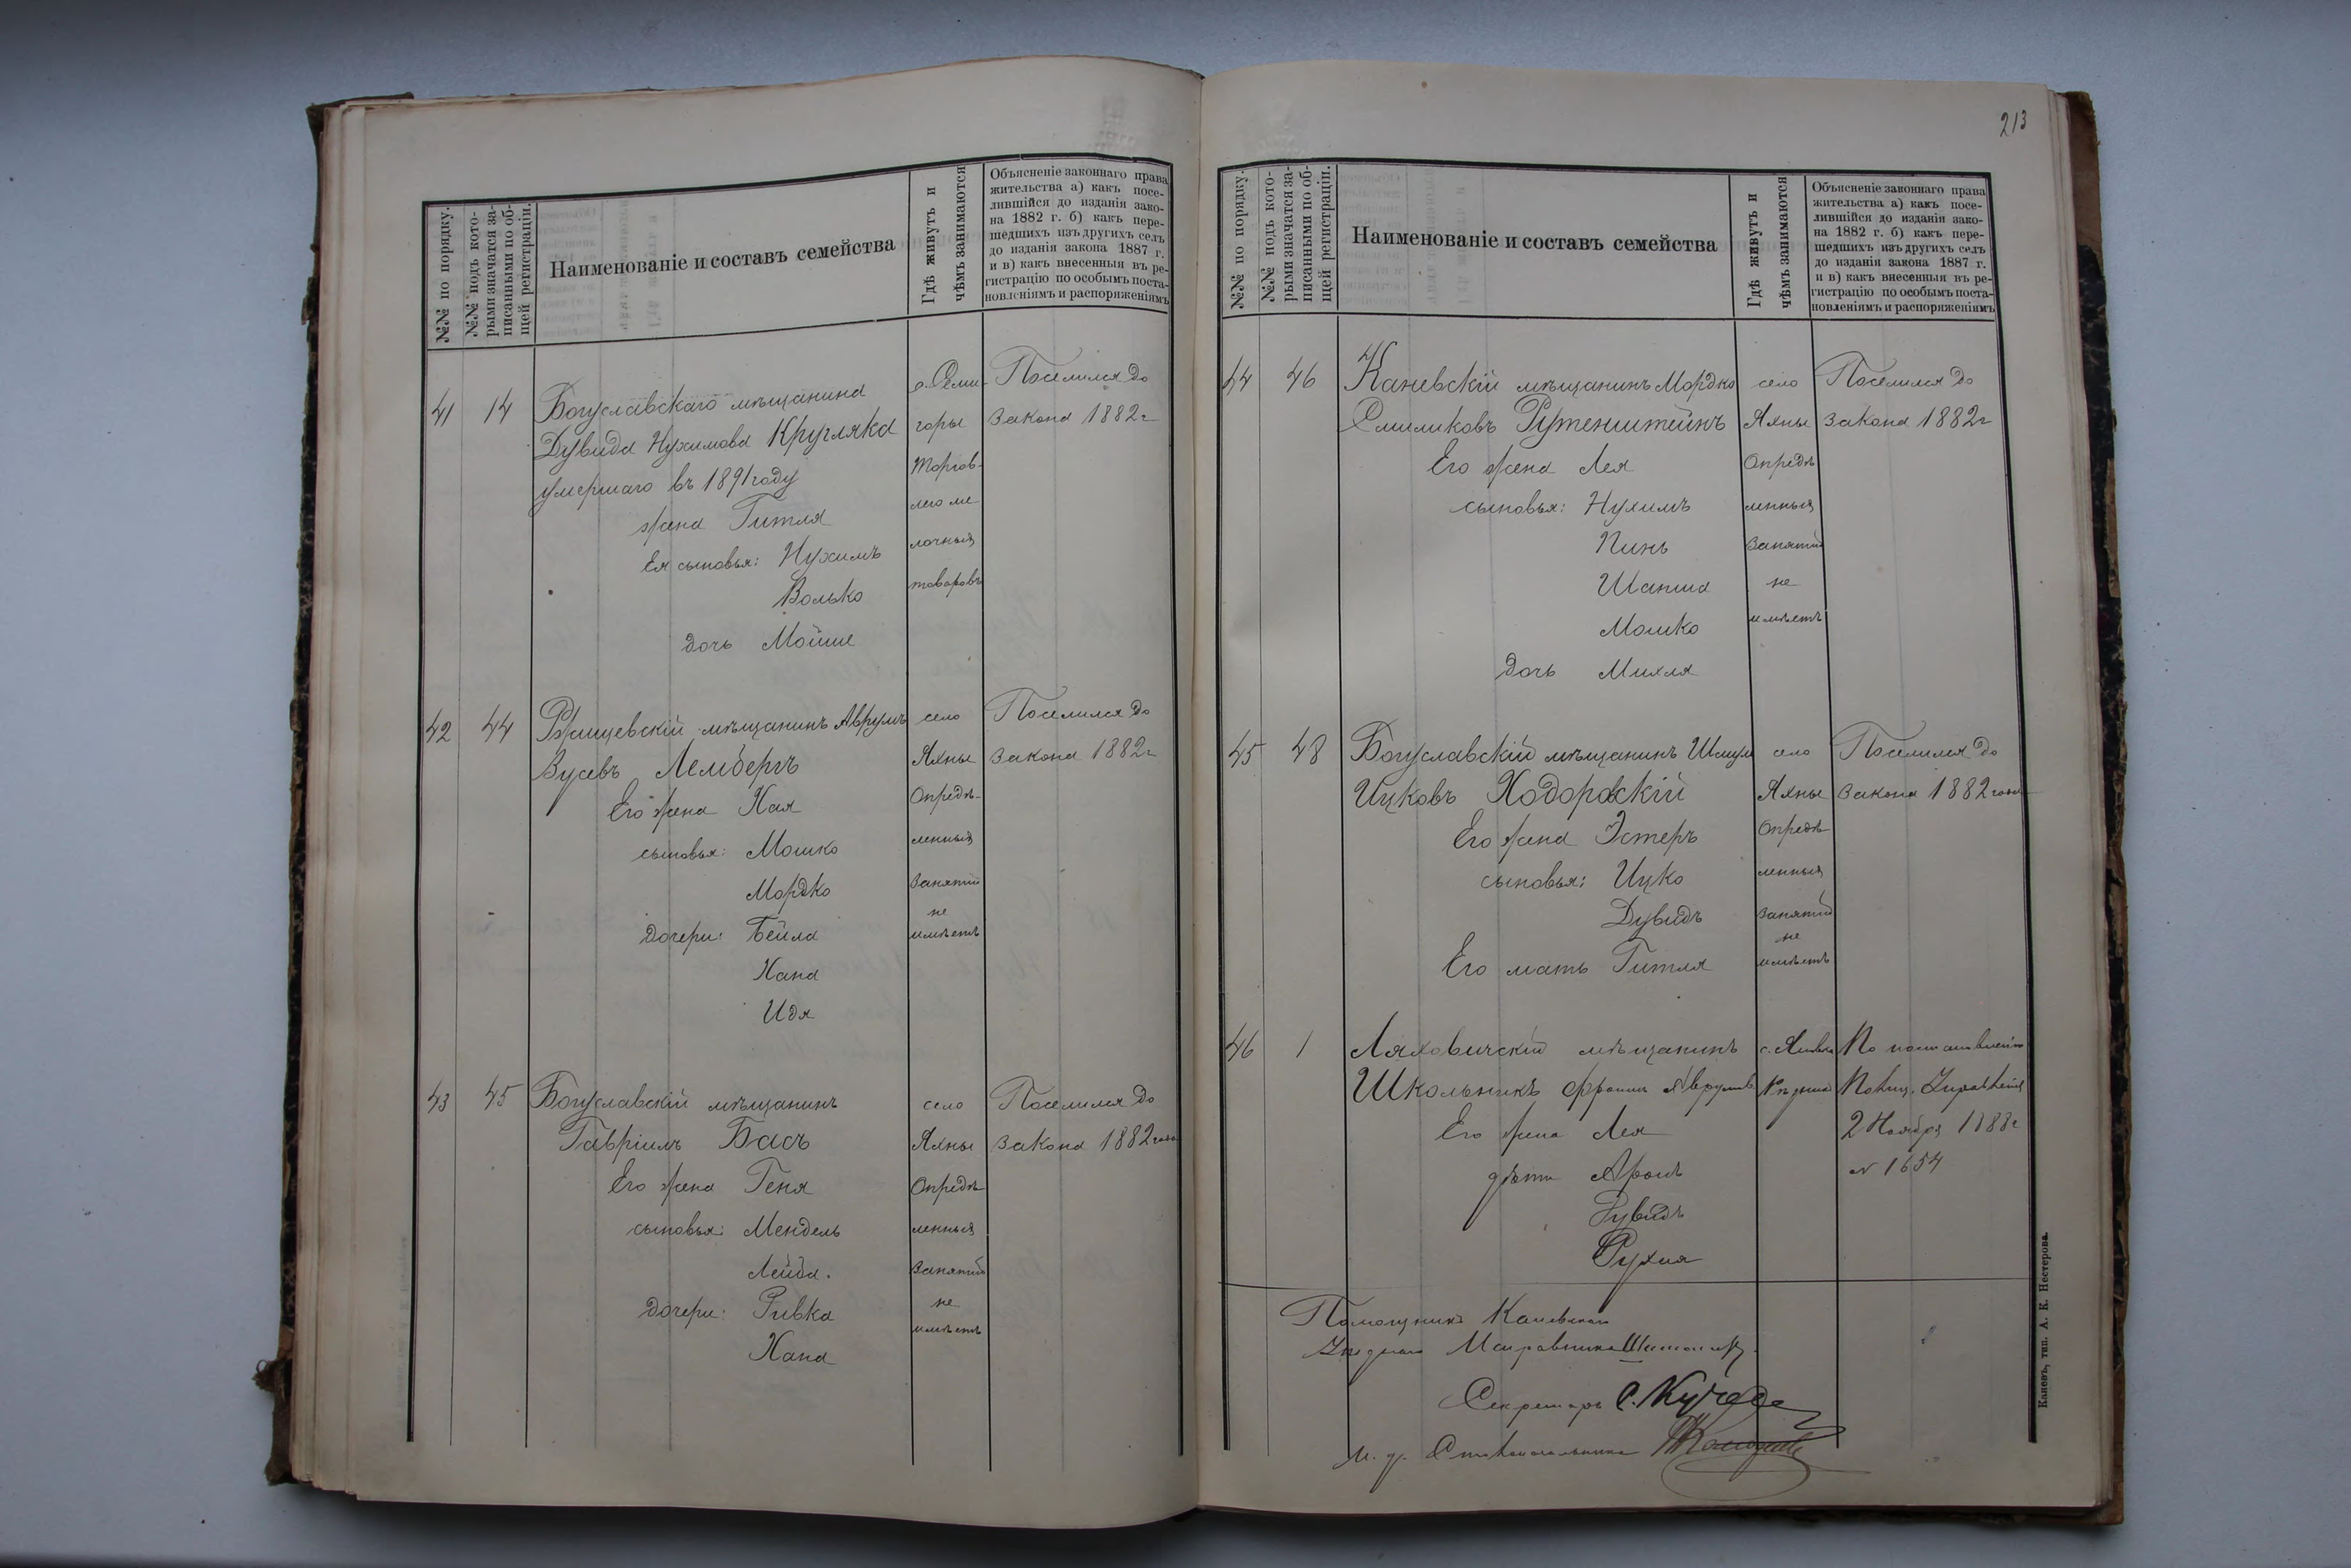 №№ по порядку.
№№ подъ кото-
рыми значатся за-
писанными по об-
щей регистраціи.
Наименованіе и составъ семейства
Гдѣ живутъ и
чѣмъ занимаются
Объясненіе законнаго права
жительства а) какъ посе-
лившійся до изданія зако-
на 1882 г. б) какъ пере-
шедшихъ изъ другихъ селъ
до изданія закона 1887 г.
и в) какъ внесенныя въ ре-
гистрацію по особымъ поста-
новленіямъ и распоряженіямъ
41 14 Богуславскаго мѣщанина
Дувида Нухимова Кругляка
умершаго въ 1891 году
жена Гитля
Ея сыновья: Нухимъ
Волько
дочь Мойше
с. Семи-
горы
Торгов-
лею ме
лочныя
товаровъ
Поселился до
Закона 1882 г
42 44 Ржищевскій мѣщанинъ Аврумъ
Вусевъ Лембергъ
Его жена Хая
сыновья: Мошко
Мордко
дочери: Бейла
Хана
Идя
село
Яхны
Опредѣ-
ленныя
Занятій
не
имѣетъ
Поселился до
Закона 1882 г
43 45 Богуславскій мѣщанинъ
Гавріилъ Басъ
Его жена Геня
сыновья: Мендель
Лейба.
дочери: Ривка
Хана
село
Яхны
Опредѣ
ленныя
Занятій
не
имѣетъ
Поселился до
Закона 1882 года
213
№№ по порядку.
№№ подъ кото-
рыми значатся за-
писанными по об-
щей регистраціи.
Наименованіе и составъ семейства
Гдѣ живутъ и
чѣмъ занимаются
Объясненіе законнаго права
жительства а) какъ посе-
лившійся до изданія зако-
на 1882 г. б) какъ пере-
шедшихъ изъ другихъ селъ
до изданія закона 1887 г.
и в) какъ внесенныя въ ре-
гистрацію по особымъ поста-
новленіямъ и распоряженіямъ
44 46 Каневскій мѣщанинъ Мордко
Сmиликовъ Рутенштейнъ
Его жена Лея
сыновья: Нухимъ
Пинь
Шапша
Мошко
дочь Михля
село
Яхны
Опредѣ
ленныя
Занятій
не
имѣетъ
Поселился до
Закона 1882 г
45 48 Богуславскій мѣщанинъ Шмул
Ицковъ Ходоровскій
Его жена Эстеръ
сыновья: Ицко
Дувидъ
Его мать Гитля
село
Яхны
Опредѣ
ленныя
Занятій
не
имѣетъ
Поселился до
Закона 1882 года
46 1 Ляховичскій мѣщанинъ
Школьникъ Фроим Аврумов.
Его жена Лея
дѣти Аронъ
Дувидъ
Рухля
По постановленію
2 Ноября 1888 г
№ 1654
Помощникъ Каневскаго
Уѣзднаго Исправника
Секретарь
И. д. Столоначальника
Каневъ, тип. А. К. Нестерова.